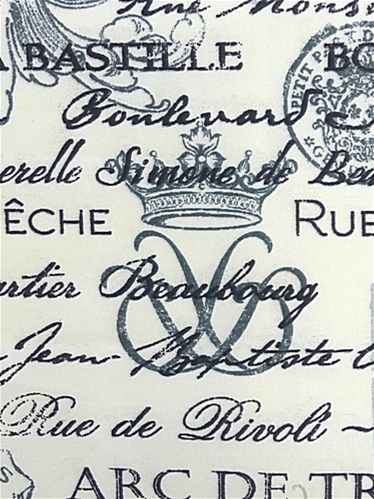 Rue Mons
A BASTILLE BO
Boulevard
PETIT P
erelle Simone de Bea
ÊCHE RUE
artier Beaubourg
Jean-Baptiste C
Rue de Rivoli ~
ARC DE TR